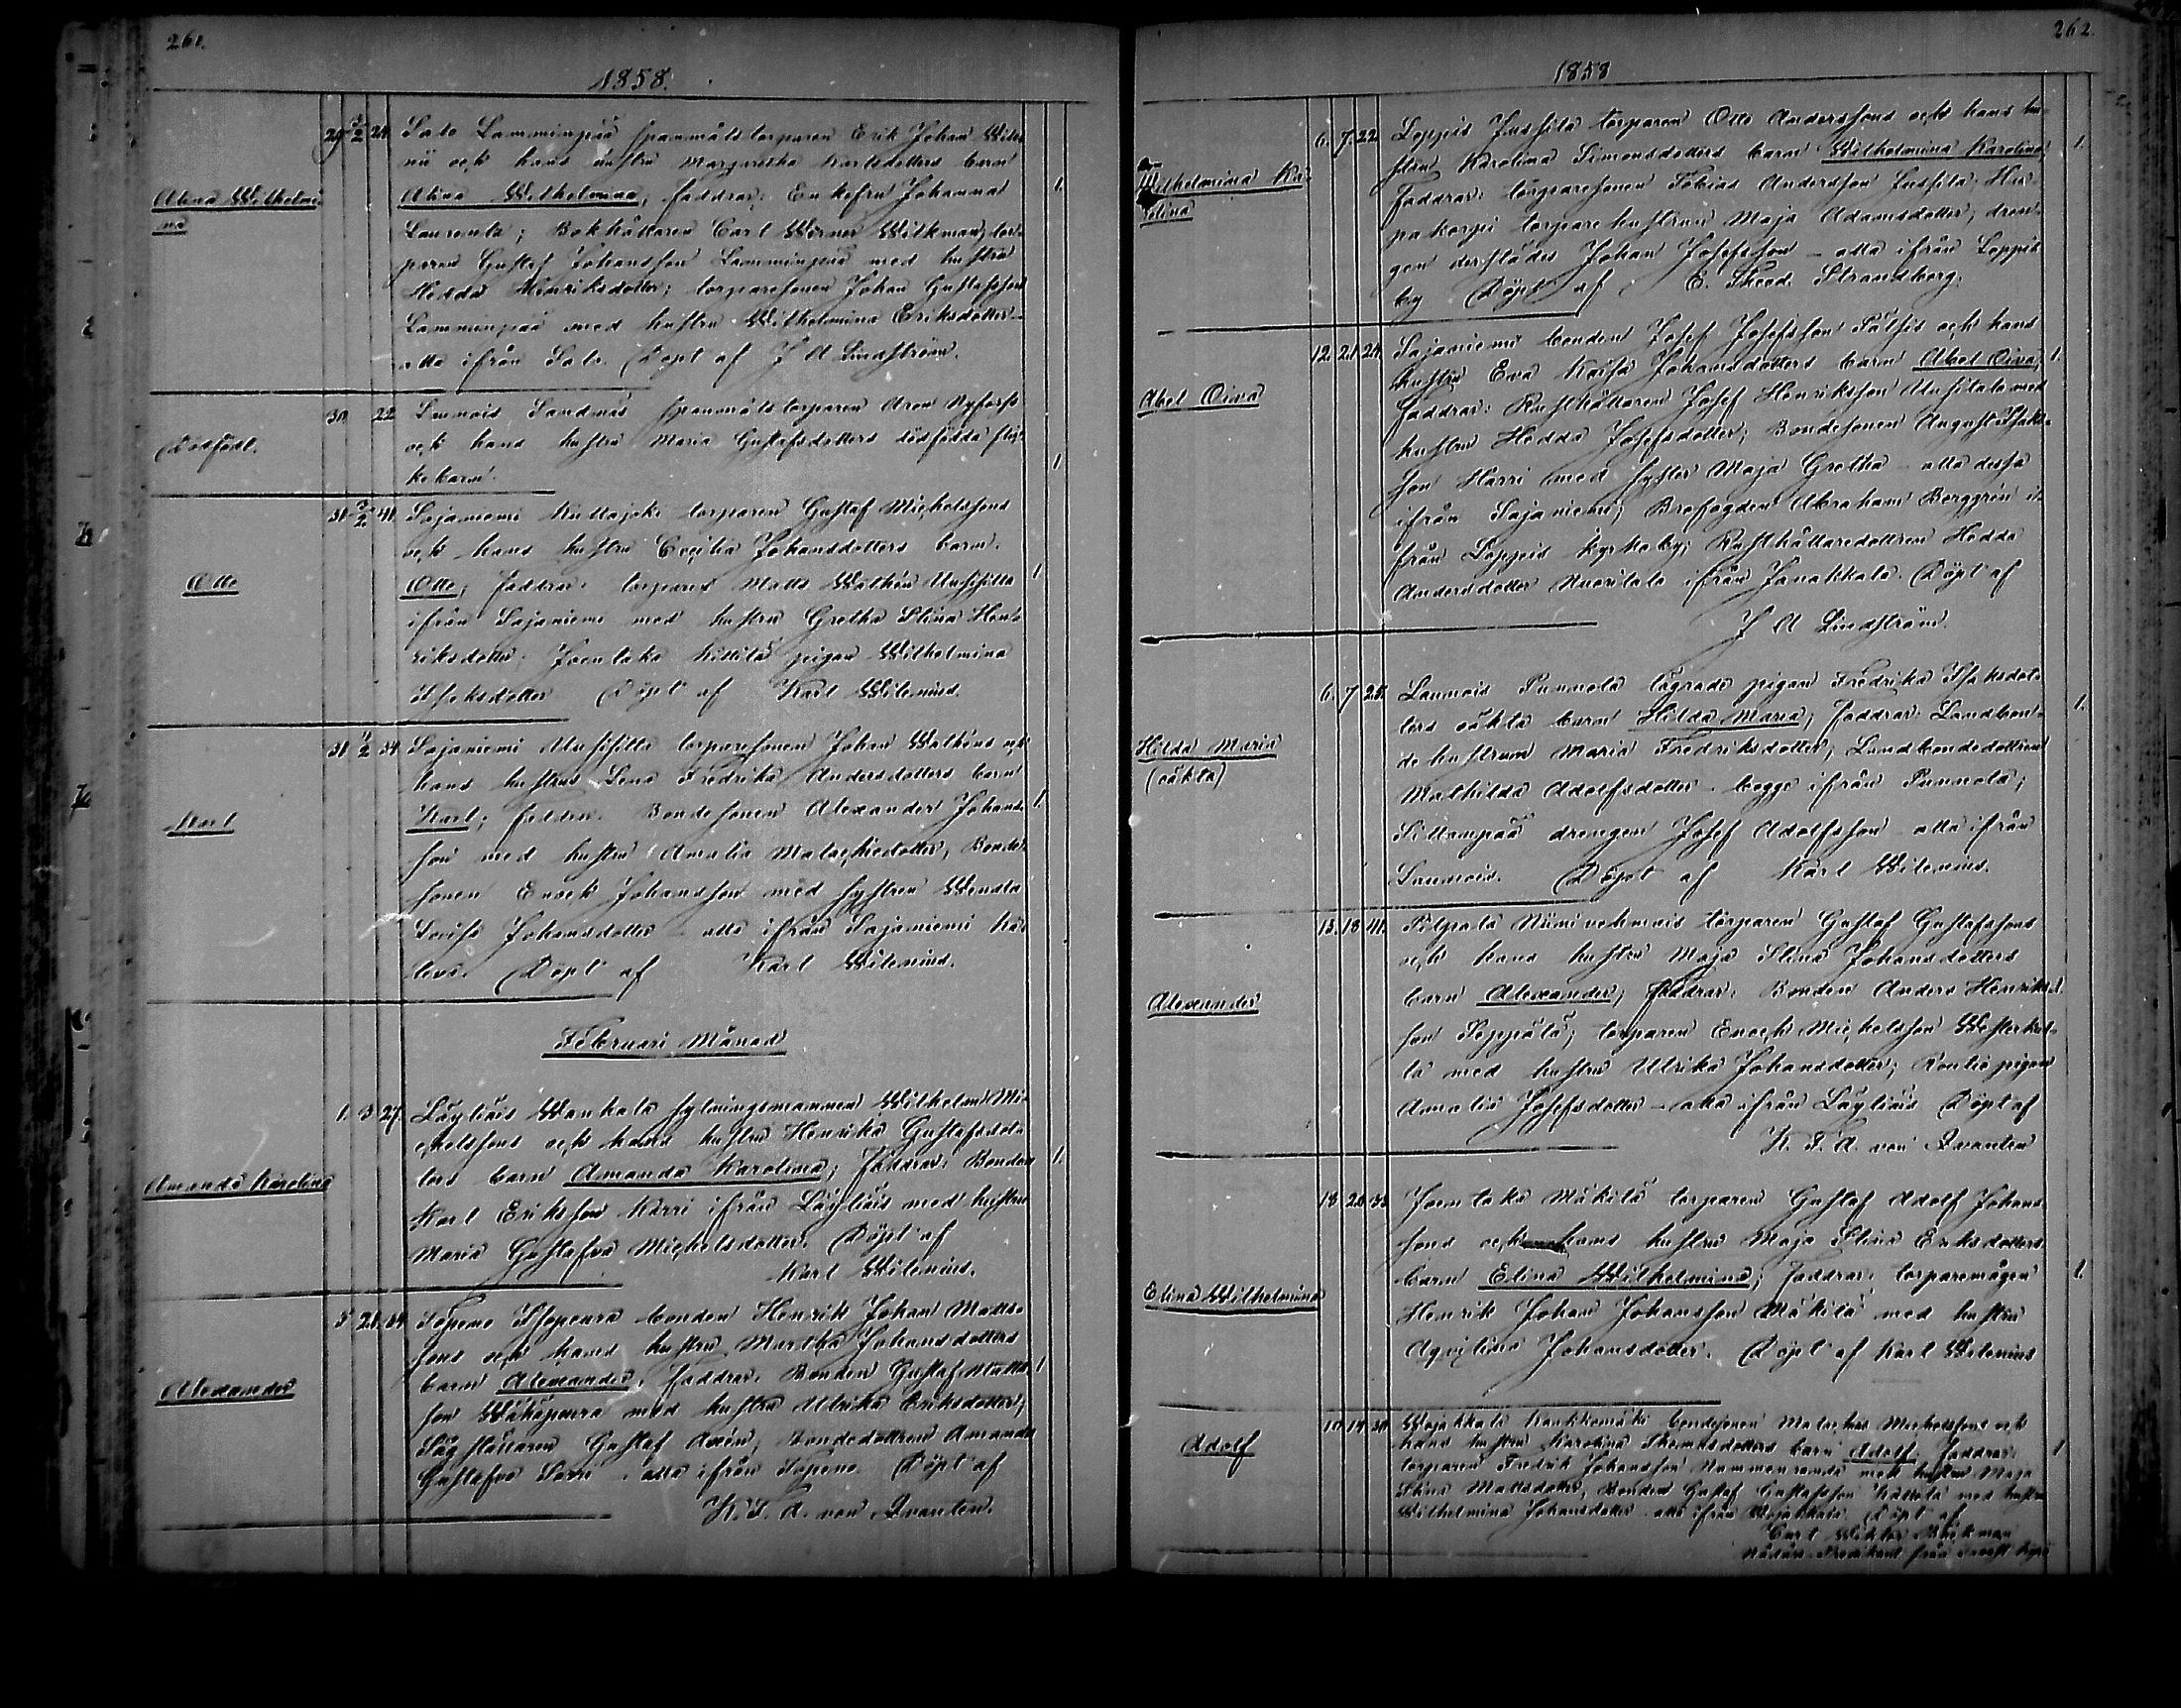 261.
1858.
Alina Wilhelmi-
na
29 3/2 24 Sale Lamminpää spanmåls torparen Erik Johan
och hans hustru Margaretha Karlsdotters barn
Alina Wilhelmina, faddrar: Enkefru Johanna
Laurenla; Bokhållaren Carl Werner Wilkman, tor-
paren Gustaf Johansson Lamminpää med hustru
Hedda Henriksdotter; torparesonen Johan Gustafsson
Lamminpää med hustru Wilhelmina Eriksdotter -
alla ifrån Sale. Döpt af J A Lindström.
1.
Dödfödt.
30 22 Launois Sandnäs spanmåls torparen Aron Nyfors
och hans hustru Maria Gustafsdotters dödfödda flic-
kebarn.
1
Otto
31 3/2 41 Sajaniemi torparen Gustaf Michelssons
och hans hustru Cecilia Johansdotters barn.
Otto; faddrar: torparen Matts Wathén
ifrån Sajaniemi med hustru Gretha Stina Hen-
riksdotter. Joentaka Kittilä pigan Wilhelmina
Isaksdotter Döpt af Karl Wilenius.
1
Karl
31 1/2 34 Sajaniemi torparesonen Johan Wathéns och
hans hustrus Lena Fredrika Andersdotters barn
Karl; faddrar: Bondesonen Alexander Johans-
son med hustru Amalia Malachiedotter, Bonde-
sonen Enock Johansson med systren Wendla
Lovisa Johansdotter - alla ifrån Sajaniemi
Döpt af Karl Wilenius.
1.
Februari Månad
Amanda Karolina
1. 3 27. Läyliäis Wanhala sytningsmannen Wilhelm Mi-
chelssons och hans hustru Henrika Gustafsdot-
ters barn Amanda Karolina; faddrar: Bonden
Karl Eriksson Kärri ifrån Läyliäis med hustru
Maria Gustafva Michelsdotter. Döpt af
Karl Wilenius.
1.
Alexander
5 21 34 Topeno Isopeura bonden Henrik Johan Matts-
sons och hans hustru Martha Johansdotters
barn Alexander, faddrar: Bonden Gustaf Matts-
son Wähäpeura med hustru Ulrika Eriksdotter;
Gustaf Axén, Bondedottren Amanda
Gustafva - alla ifrån Topeno. Döpt af
K. F. A. von Qvanten.
1
262.
1858
Wilhelmina Ka-
rolina
6. 7. 22 Loppis Jussila torparen Otto Anderssons och hans hu-
stru Karolina Simonsdotters barn Wilhelmina Karolina
Faddrar: torparesonen Tobias Andersson Jussila, Haa-
pakorpi torpare hustrun Maja Adamsdotter, dren-
gen derstädes Johan Josefsson - alla ifrån Loppis
by Döpt af E. Theod. Strandberg.
1.
Abel Oiva
12. 21 24. Sajaniemi bonden Josef Josefsson och hans
hustru Eva Kaisa Johansdotters barn Abel Oiva;
faddrar: Rusthållaren Josef Henriksson med
hustru Hedda Josefsdotter; Bondesonen August Isaks-
son Harri med syster Maja Gretha - alla dessa
ifrån Sajaniemi; Brofogden Abraham Berggrén i-
från Loppis kyrkoby; Rusthållaredottren Hedda
Andersdotter ifrån Janakkala. Döpt af
J A Lindström.
1.
Hilda Maria
(oäkta)
6. 7 25. Launois Punnola lägrade pigan Fredrika Isaksdot-
ters oäkta barn Hilda Maria; faddrar: Landbon-
de hustrun Maria Fredriksdotter; Landbondedottren
Mathilda Adolfsdotter. begge ifrån Punnola;
Sillanpää drengen Josef Adolfsson - alla ifrån
Launois. Döpt af Karl Wilenius.
1.
Alexander
15. 18 41. Pilpala torparen Gustaf Gustafssons
och hans hustru Maja Stina Johansdotters
barn Alexander; faddrar: Bonden Anders Henriks-
son Seppälä; torparen Enoch Michelsson
med hustru Ulrika Johansdotter; pigan
Amalia Josefsdotter - alla ifrån Läyliäis Döpt af
K. F. A. von Qvanten
1.
Elina Wilhelmina
18 20 Joentaka Mäkilä torparen Gustaf Adolf Johans-
sons och hans hustru Maja Stina Eriksdotters
barn Elina Wilhelmina; faddrar: torparemågen
Henrik Johan Johansson Mäkilä med hustru
Aqvilina Johansdotter. Döpt af Karl Wilenius
1.
Adolf
10 14 30 Wojakkala bondesonen Malachias Michelssons och
hans hustru Karolina Thomasdotters barn Adolf. faddrar:
torparen Fredrik Johansson med hustru Maja
Stina Mattsdotter, Bonden Gustaf Gustafsson med hustru
Wilhelmina Johansdotter. alla ifrån Wojakkala. Döpt af
Carl Wiktor
1